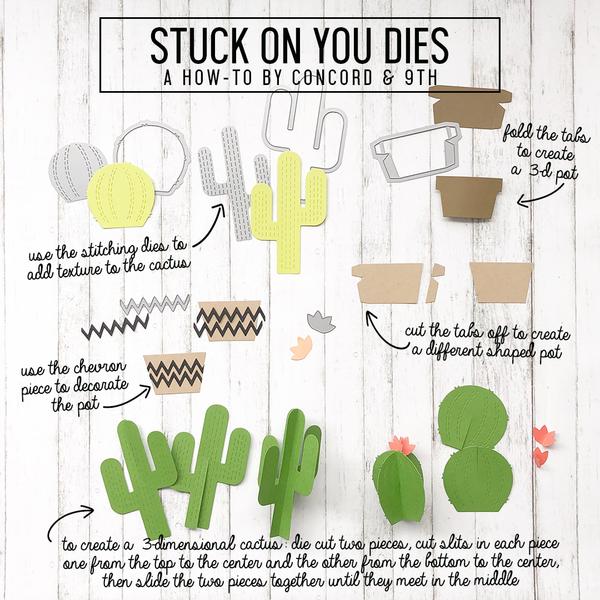 STUCK ON YOU DIES
A HOW-TO BY CONCORD & 9TH
fold the tabs
to create
a 3-d pot
use the stitching dies to
add texture to the cactus
cut the tabs off to create
a different shaped pot
use the chevron
piece to decorate
the pot
to create a 3-dimensional cactus: die cut two pieces, cut slits in each piece
one from the top to the center and the other from the bottom to the center,
then slide the two pieces together until they meet in the middle